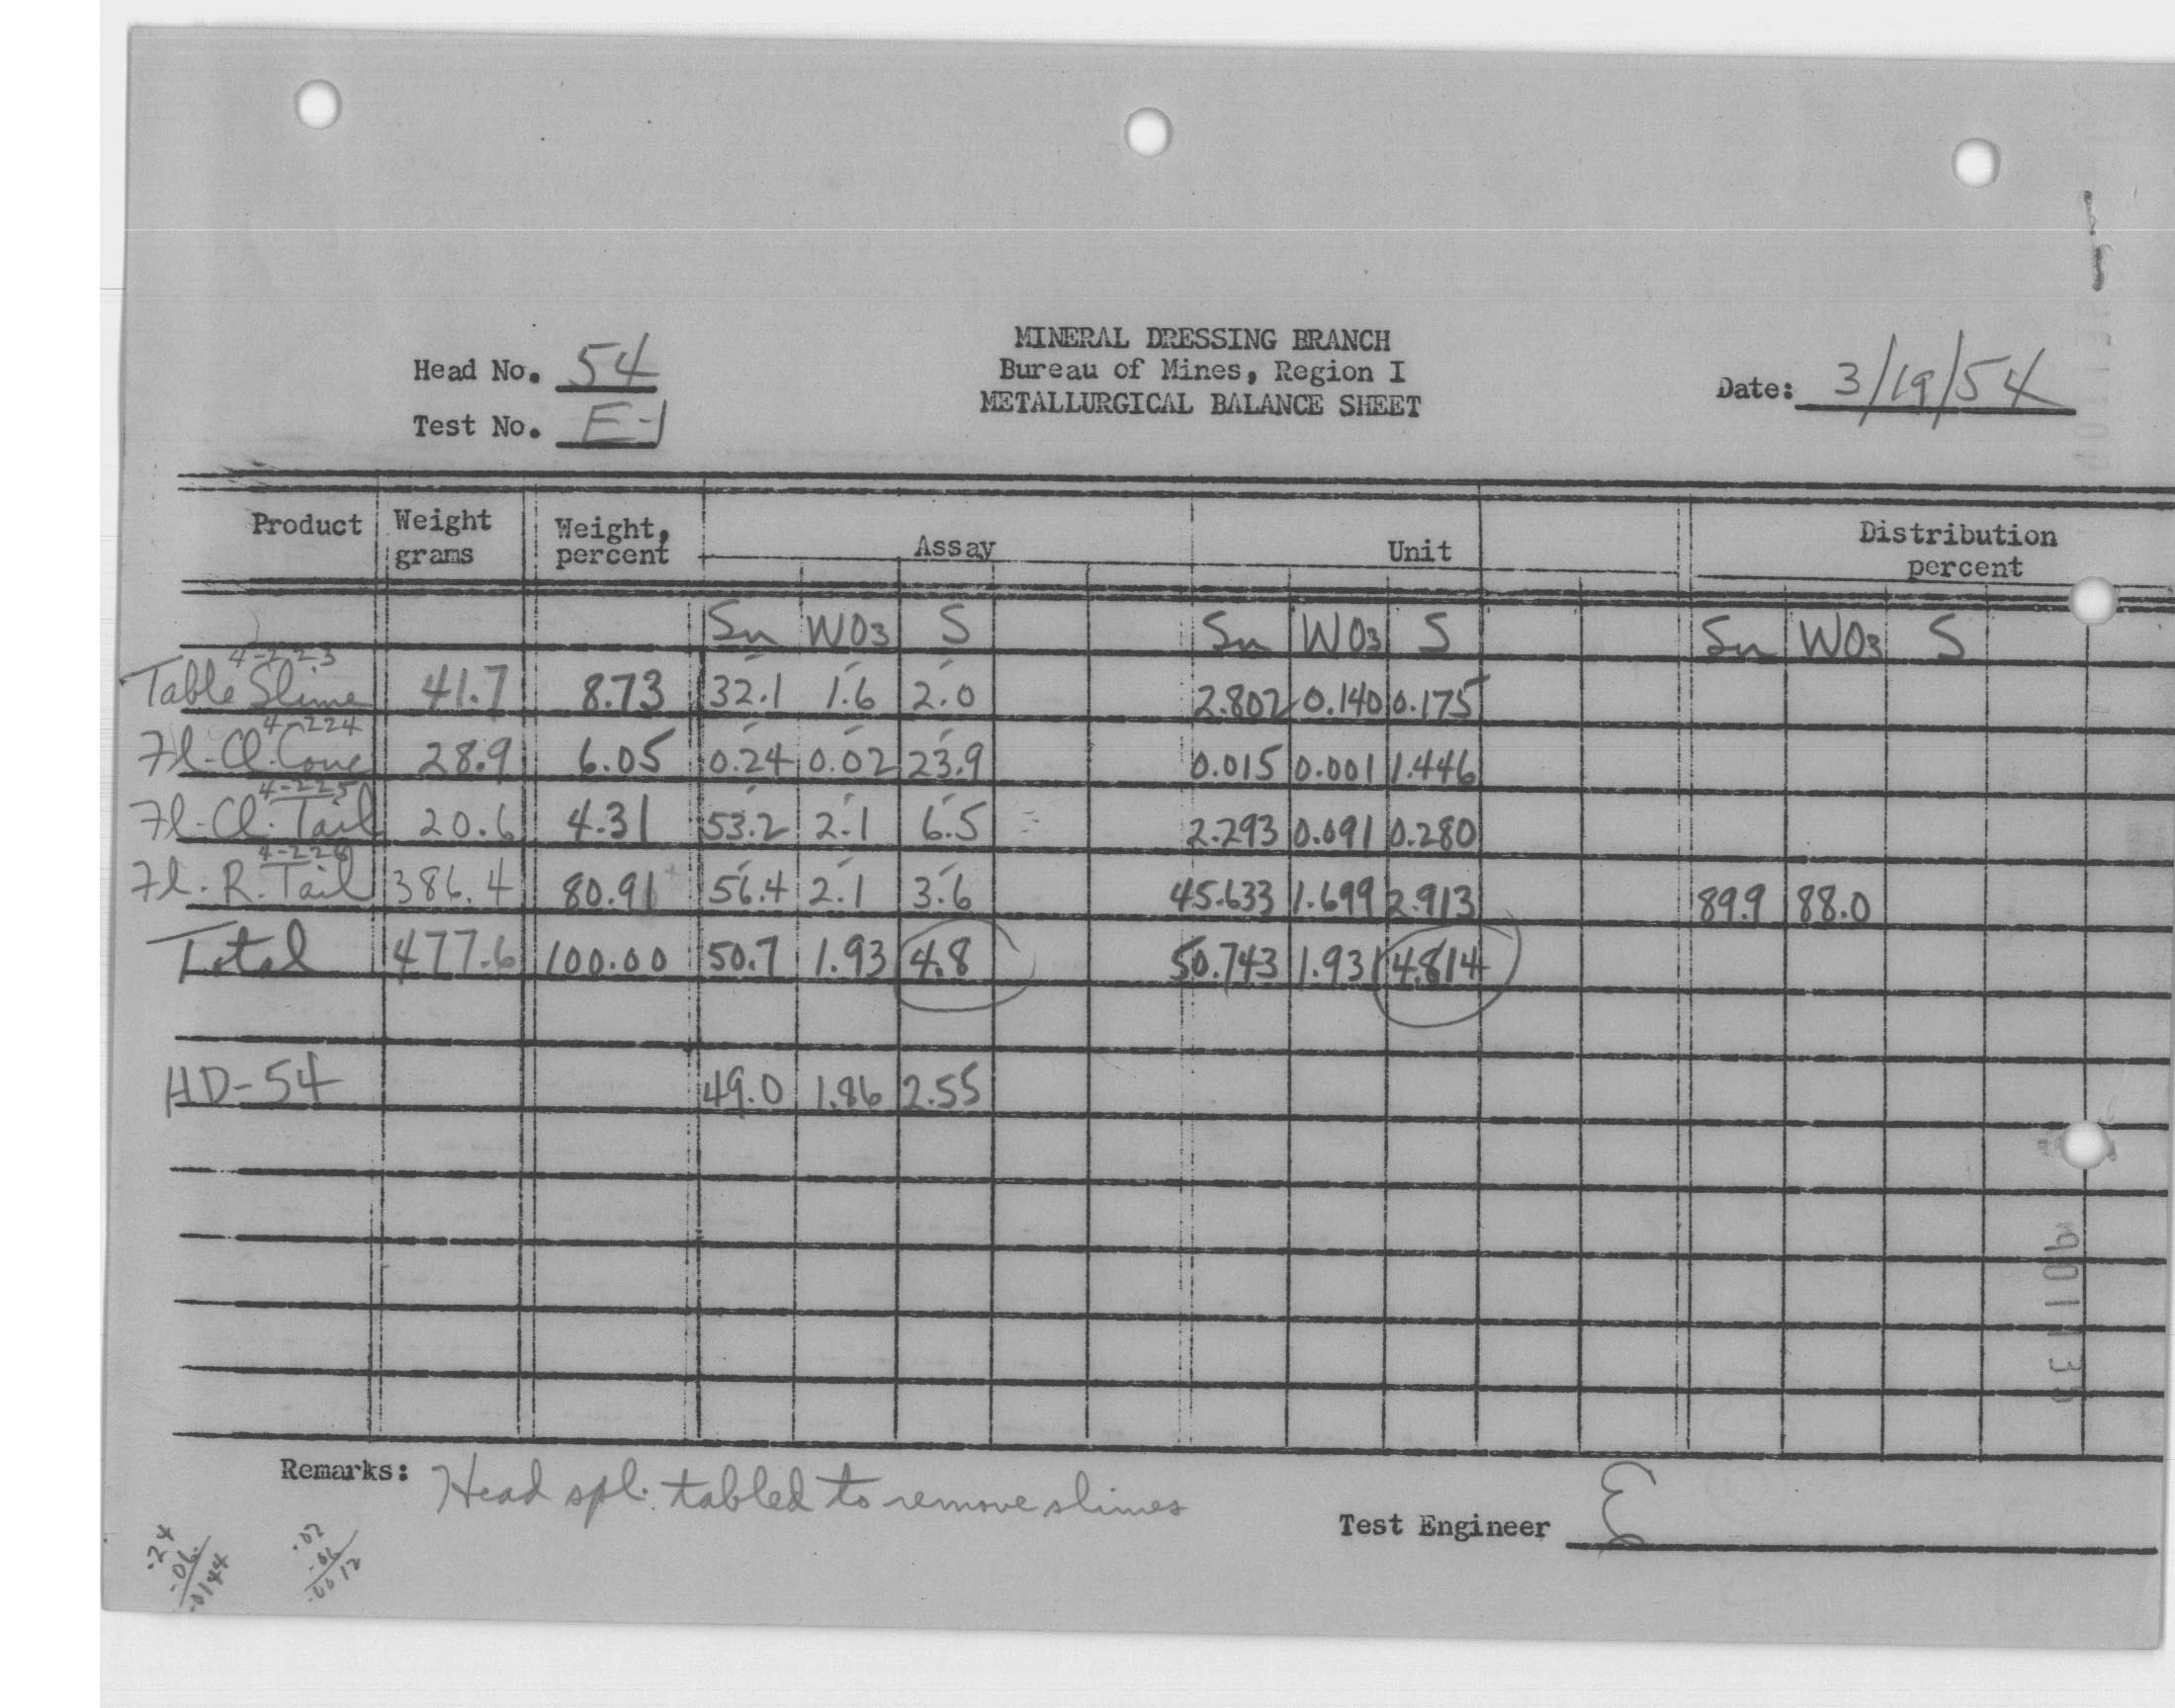 MINERAL DRESSING BRANCH
Head No. 54 Bureau of Mines, Region I Date: 3/19/54
METALLURGICAL BALANCE SHEET
Test No. E-1
Product Weight grams Weight, percent Assay Unit Distribution percent
Sn WO3 S Sn WO3 S Sn WO3 S
4-223
Table Slime 41.7 8.73 32.1 1.6 2.0 2.802 0.140 0.175
4-224
Fl-Cl. Conc 28.9 6.05 0.24 0.02 23.9 0.015 0.001 1.446
4-225
Fl-Cl. Tail 20.6 4.31 53.2 2.1 6.5 2.293 0.091 0.280
4-226
Fl. R. Tail 386.4 80.91 56.4 2.1 3.6 45.633 1.699 2.913 89.9 88.0
Total 477.6 100.00 50.7 1.93 4.8 50.743 1.931 4.814
HD-54 49.0 1.86 2.55
Remarks: Head spl. tabled to remove slimes
Test Engineer E
.24 .02
.06 .06
.0144 .0012